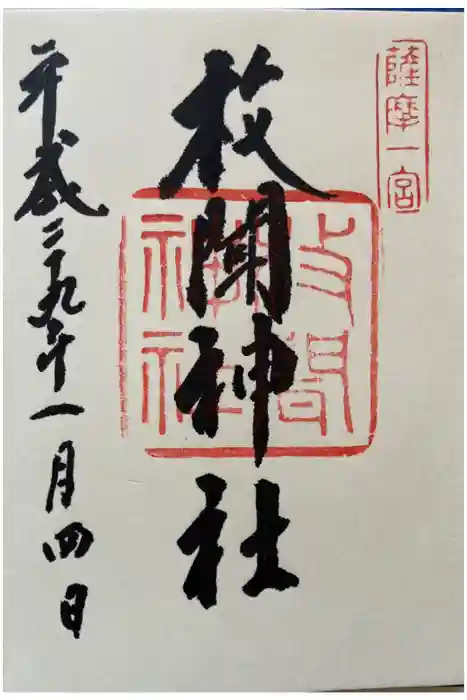 薩摩一宮
枚聞神社
枚聞神社
平成二十九年一月四日